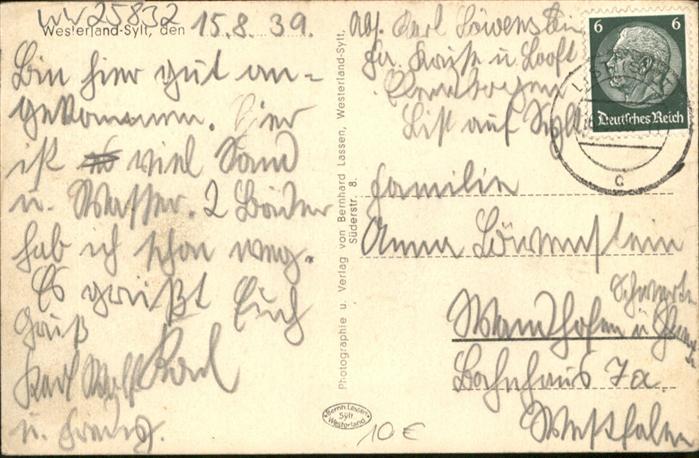 WW25832
Westerland-Sylt, den 15.8.39.
Bin hier gut an-
gekommen. Hier
ist viel Sand
u. Wasser. 2 Bäder
hab ich schon weg.
Es grüßt Euch
Karl
Karl Wolf
u.
Photographie u. Verlag von Bernhard Lassen, Westerland-Sylt,
Süderstr. 8.
Bernh. Lassen
Sylt
Westerland
10 €
Abs. Karl Löwenstein
Fa. u.
List auf Sylt
6 6
Deutsches Reich
c
Familie
Anna Löwenstein
Wandhofen
Schwerte
Bahnhaus 7a.
Westfalen